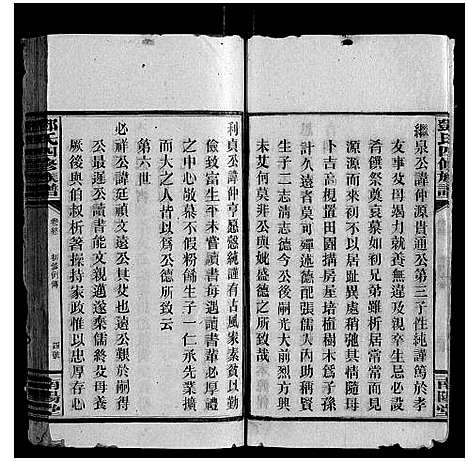 鄧氏四修族譜
南陽堂
繼泉公諱仲源貴通公第三子性純謹篤於孝
友事父母竭力就善無違及親卒生忌必設
肴饌祭奠哀慕如初兄弟雖析居常常而見
源源而來初不以居趾異處稍弛其情隨母
卜吉高梘置田園搆房屋培植樹木為子孫
計久遠者莫可殫述德配張儒人內助稱賢
生子二志清志德今公後嗣光大前烈方興
未艾何莫非公與嫓盛德之所致哉
利貞公諱仲亨愿慤純謹有古風家素貧以勤
儉致富生平未嘗讀書每遇讀書輩必厚禮
之中心敬慕不假粉飾生子一仁承先業擴
而大之人皆以為公德所致云
第六世
必祥公諱廷禎文遠公其父也文遠公艱於嗣得
公最遲公讀書能文親邁遂棄儒終父母喪
厥後與伯叔析著操持家政惟以忠厚
鄧氏四修族譜
南陽堂